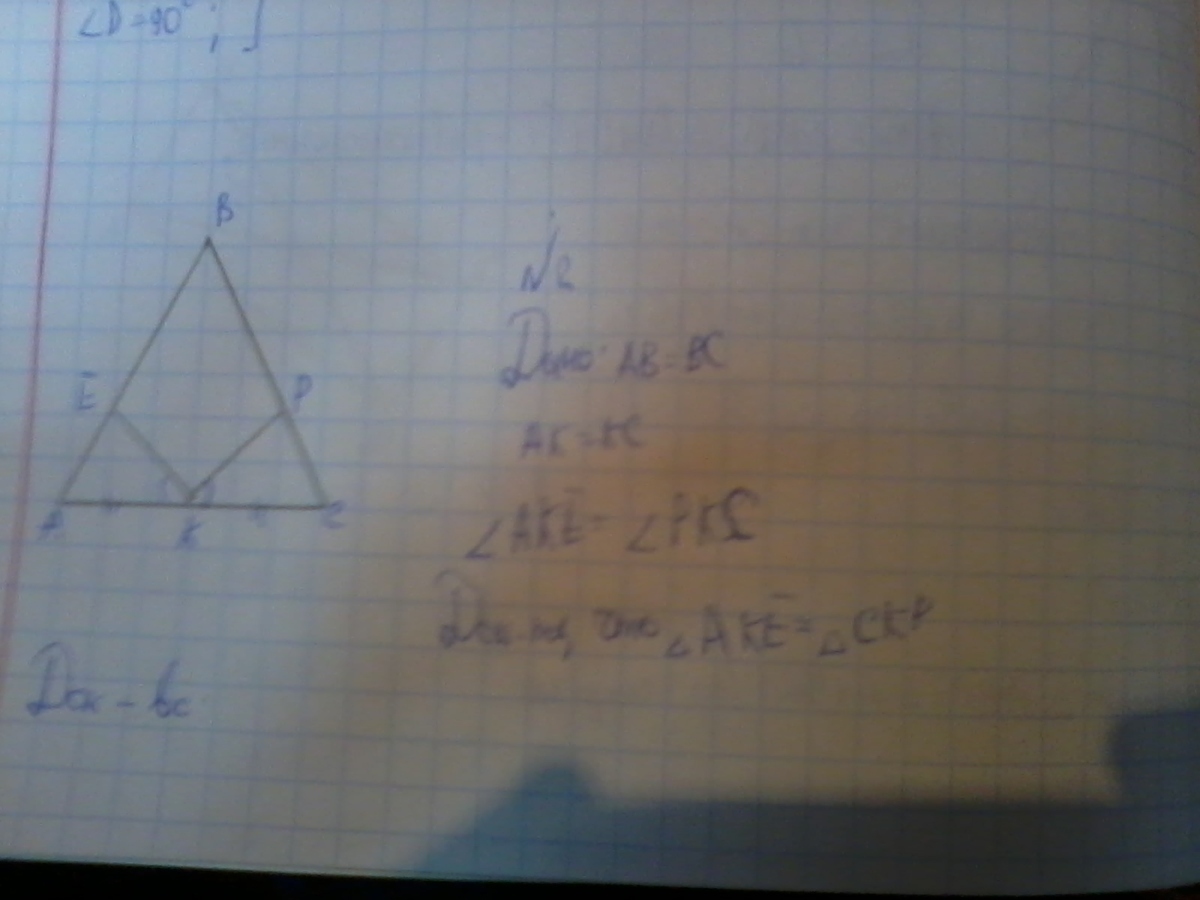 ∠D=90°;
B
E
P
A
K
C
№2
Дано: AB=BC
AK=KC
∠AKE=∠PKC
Док-ть, что ∠AKE=△CKP
Док-во